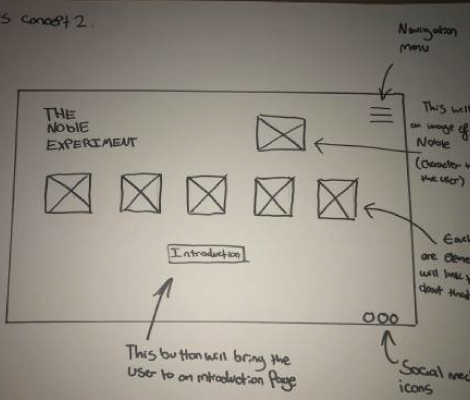 s concept 2.
Navigation
menu
THE
NOBLE
EXPERIMENT
This will
an image of
Noble
(Character
the user)
Each
are
will link
about that
Introduction
This button will bring the
user to an introduction page
Social med
icons